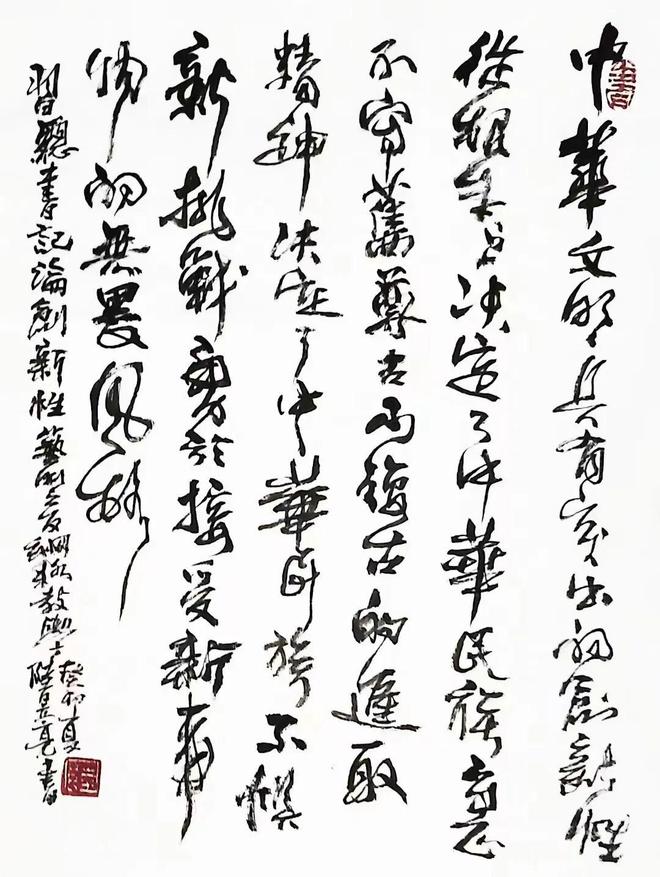 中華文明具有突出的創新性
從根本上決定了中華民族守正
不守舊尊古不復古的進取
精神決定了中華民族不懼
新挑戰勇於接受新事
物的無畏風格
習總書記論創新性
癸卯夏